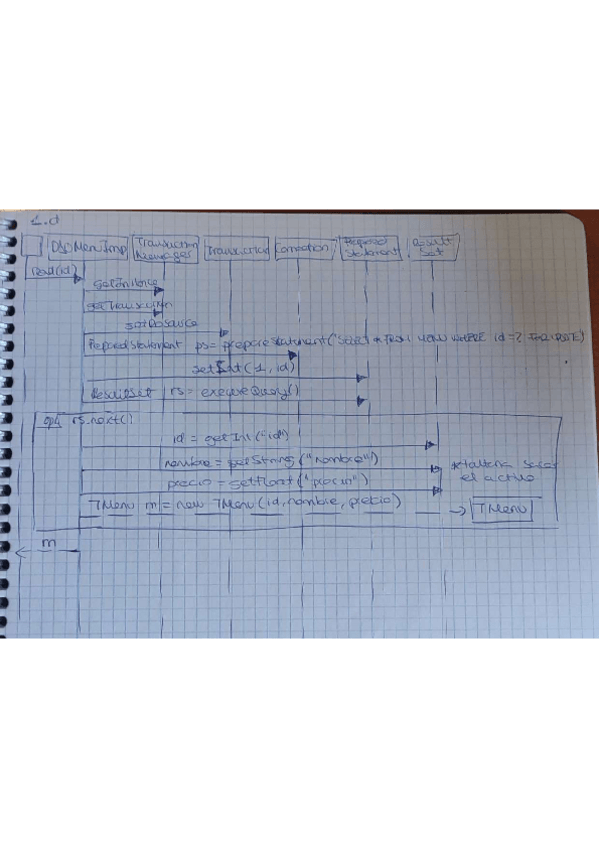 1.d
DAOMenuImp
Transaction Manager
Transaction
Connection
Prepared Statement
Result Set
read(id)
getInstance
getTransaction
getResource
PreparedStatement ps = prepareStatement("Select * From MENU WHERE id =? FOR UPDATE)
setInt(1, id)
ResultSet rs = executeQuery()
opt rs.next()
id = getInt("id")
nombre = getString("nombre")
precio = getFloat("precio")
*faltaria sacar
el activo
TMenu m = new TMenu(id, nombre, precio)
TMenu
m